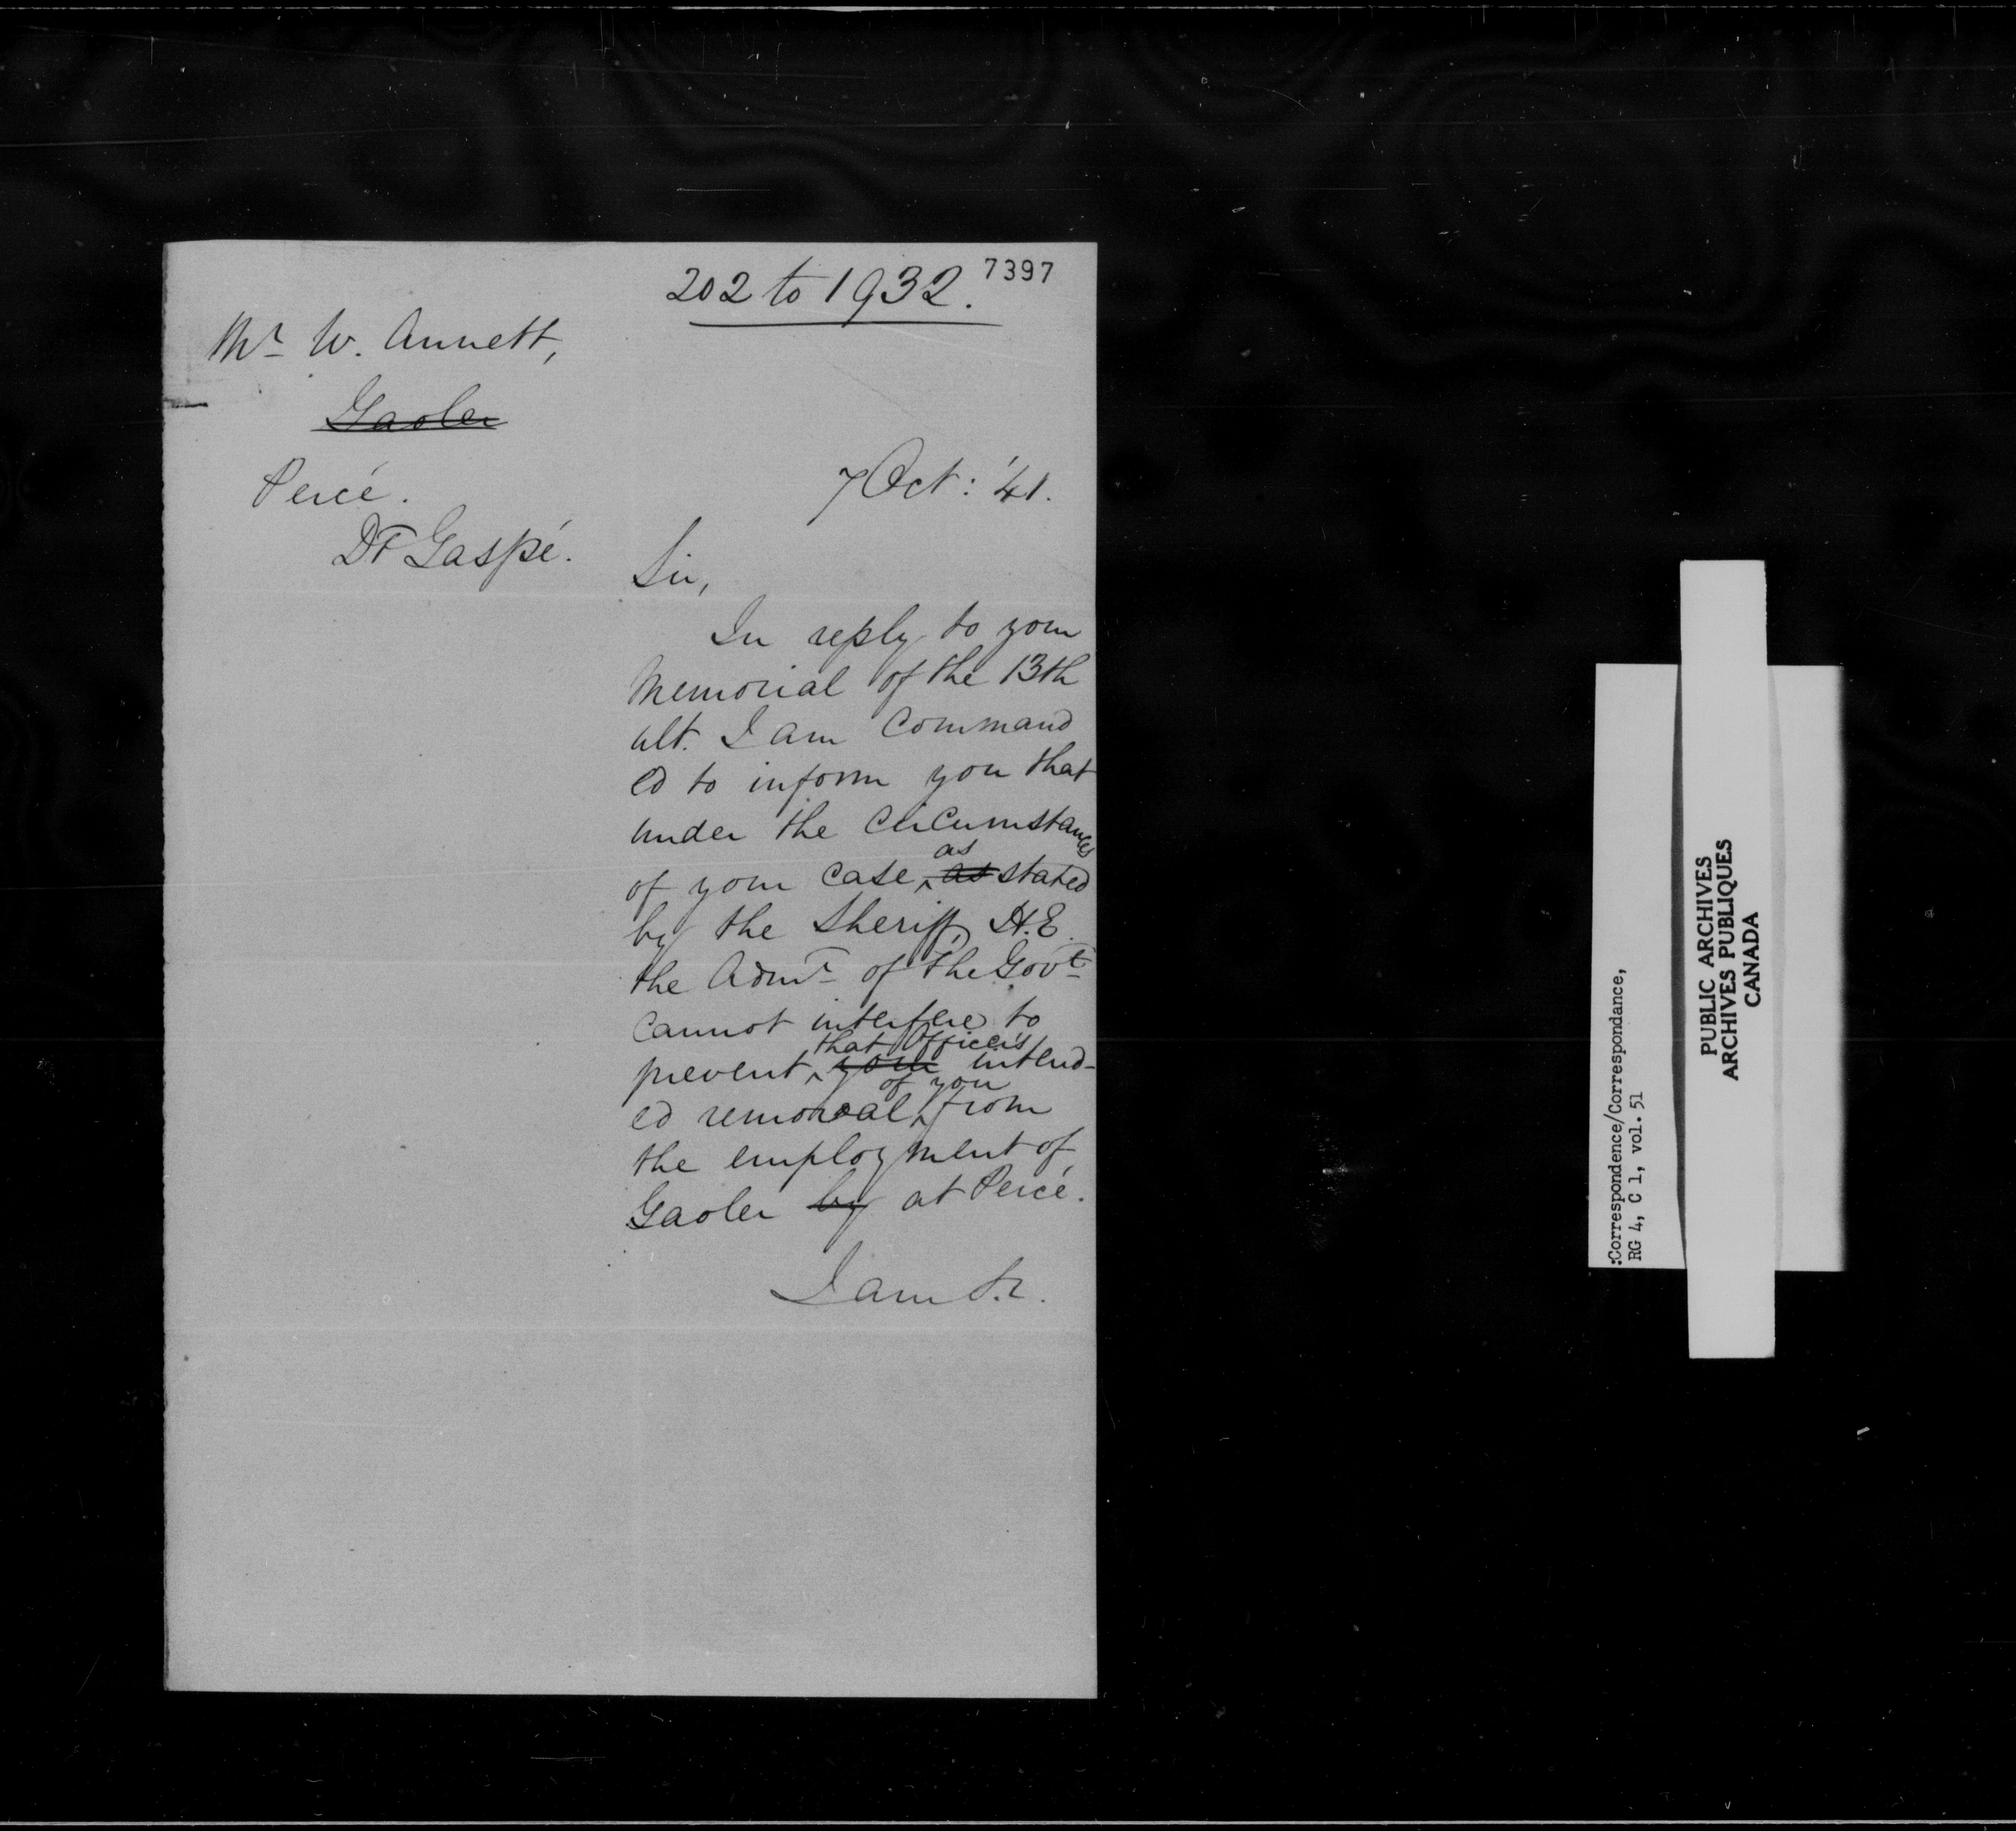 202 to 1932.
7397
Mr W. Annett,
Gaoler
Percé.
Dt Gaspé.
7 Oct: '41.
Sir,
In reply to your
Memorial of the 13th
ult. I am command
ed to inform you that
under the circumstances
as
of your case, as stated
by the Sheriff, H.E.
the Admr of the Govt
cannot interfere to
that Officer's
prevent your intend-
of you
ed removal from
the employment of
Gaoler by at Percé.
I am &c.
:Correspondence/Correspondance,
RG 4, C 1, vol. 51
PUBLIC ARCHIVES
ARCHIVES PUBLIQUES
CANADA